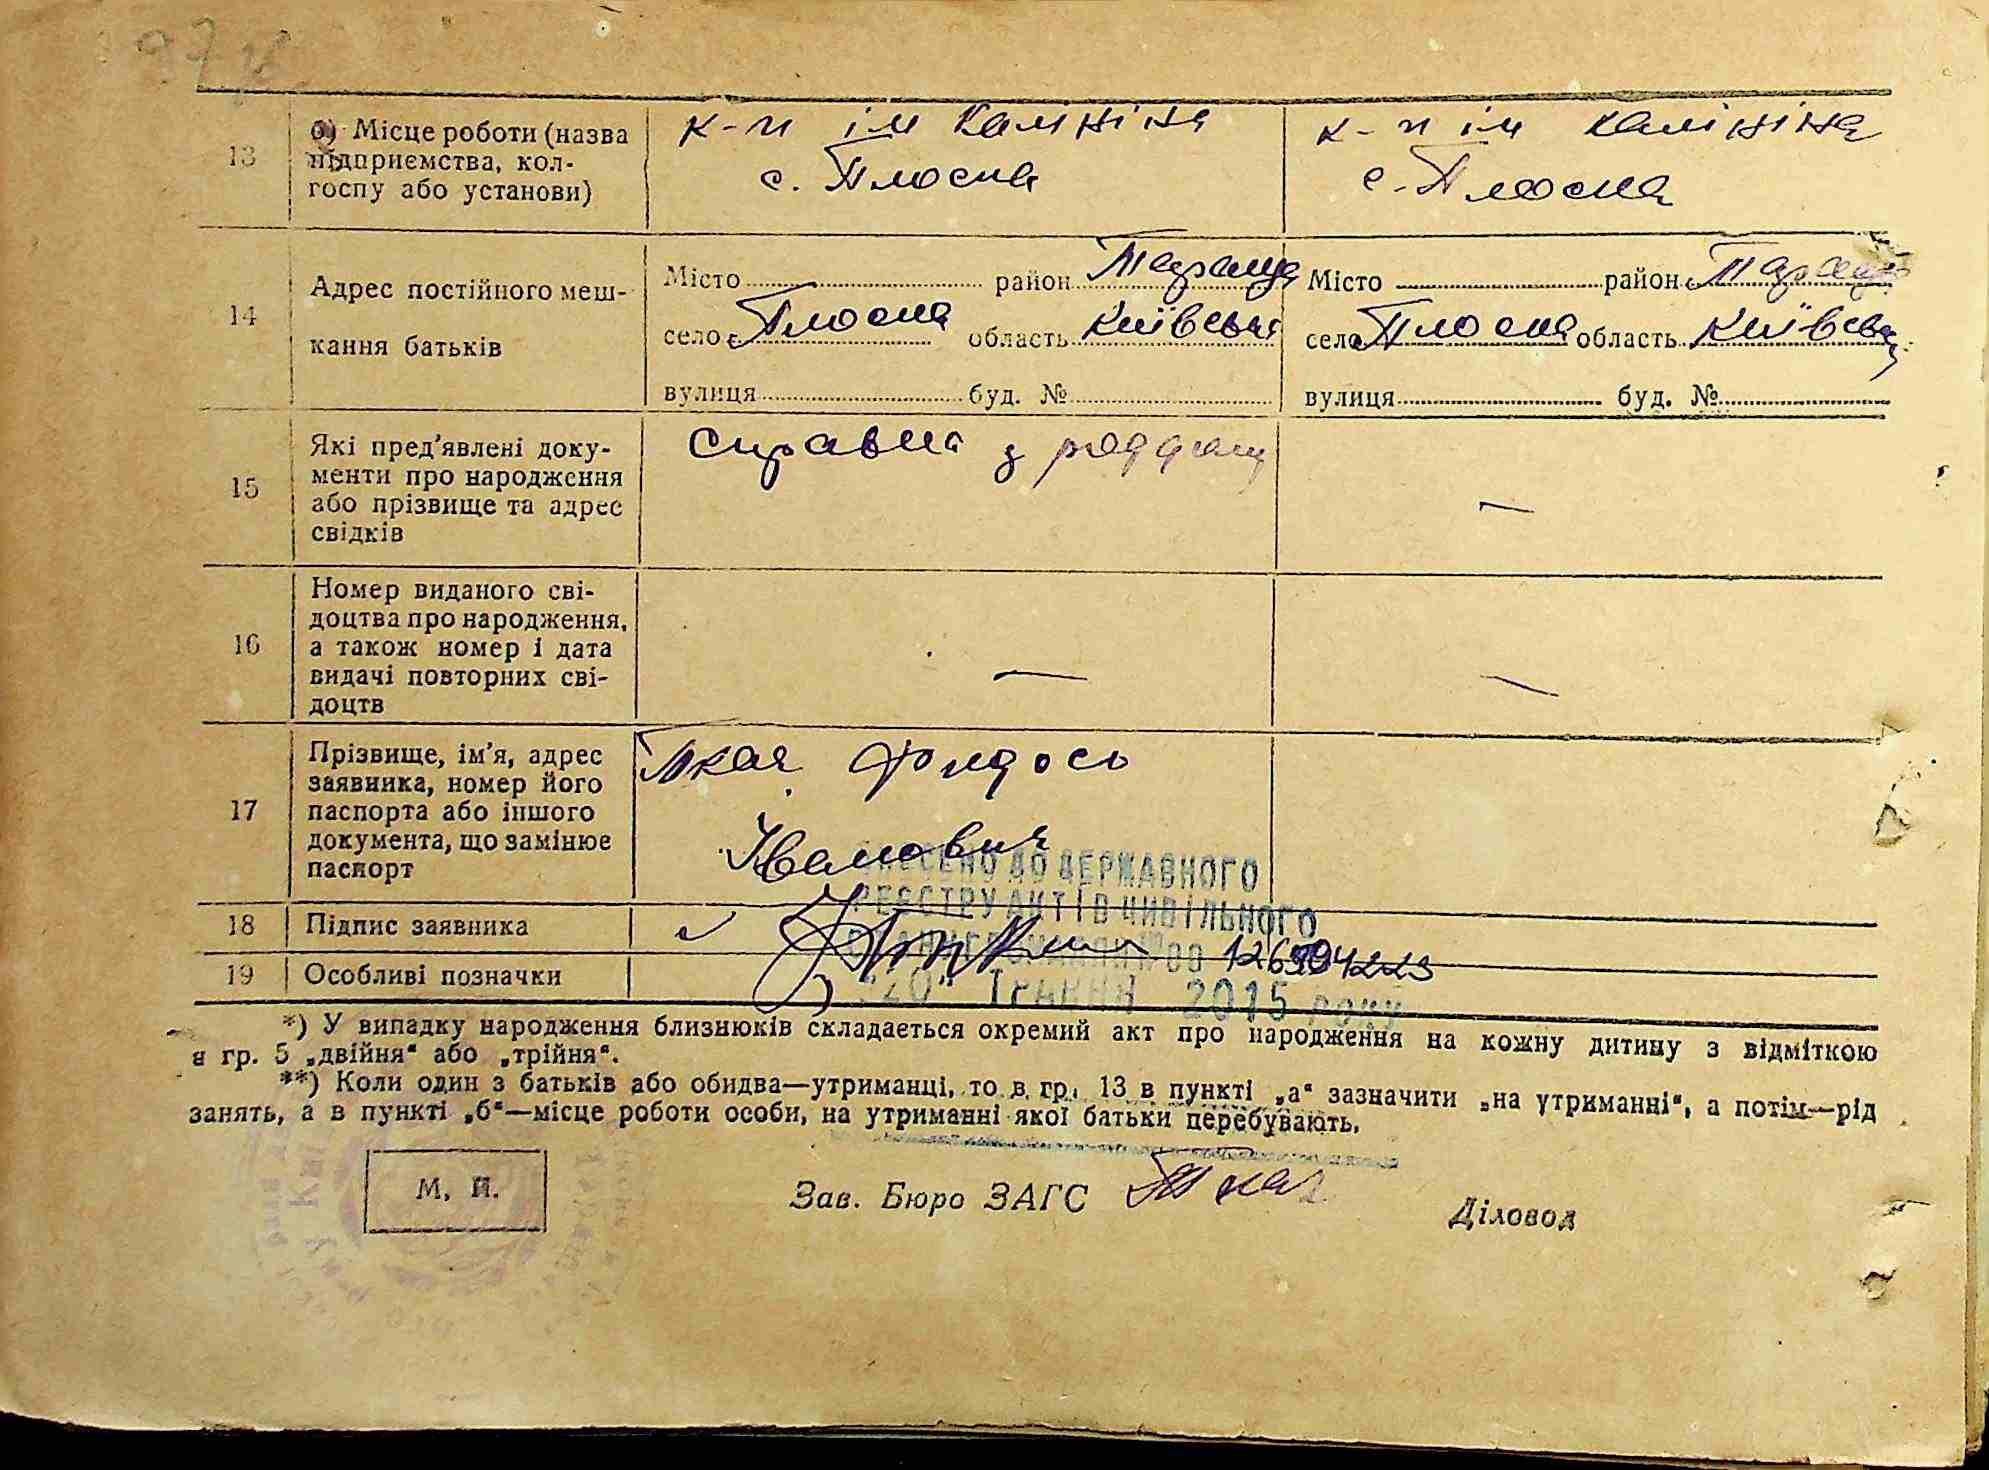 97
13
б) Місце роботи (назва
підприємства, кол-
госпу або установи)
к-п ім Калініна
с. Плоска
к-п ім Калініна
с. Плоска
14
Адрес постійного меш-
кання батьків
Місто район Тараща
село Плоска область Київська
вулиця буд. №
Місто район Тараща
село Плоска область Київська
вулиця буд. №
15
Які пред'явлені доку-
менти про народження
або прізвище та адрес
свідків
справка з роддому
—
16
Номер виданого сві-
доцтва про народження,
а також номер і дата
видачі повторних сві-
доцтв
—
—
17
Прізвище, ім'я, адрес
заявника, номер його
паспорта або іншого
документа, що замінює
паспорт
Ткач Федось
Іванович
ВНЕСЕНО ДО ДЕРЖАВНОГО
РЕЄСТРУ АКТІВ ЦИВІЛЬНОГО
СТАНУ ГРОМАДЯН №00
"20" ТРАВНЯ 2015 року
18
Підпис заявника
19
Особливі позначки
*) У випадку народження близнюків складається окремий акт про народження на кожну дитину з відміткою
в гр. 5 „двійня“ або „трійня“.
**) Коли один з батьків або обидва—утриманці, то в гр. 13 в пункті „а“ зазначити „на утриманні“, а потім—рід
занять, а в пункті „б“—місце роботи особи, на утриманні якої батьки перебувають.
М. П.
Зав. Бюро ЗАГС
Діловод